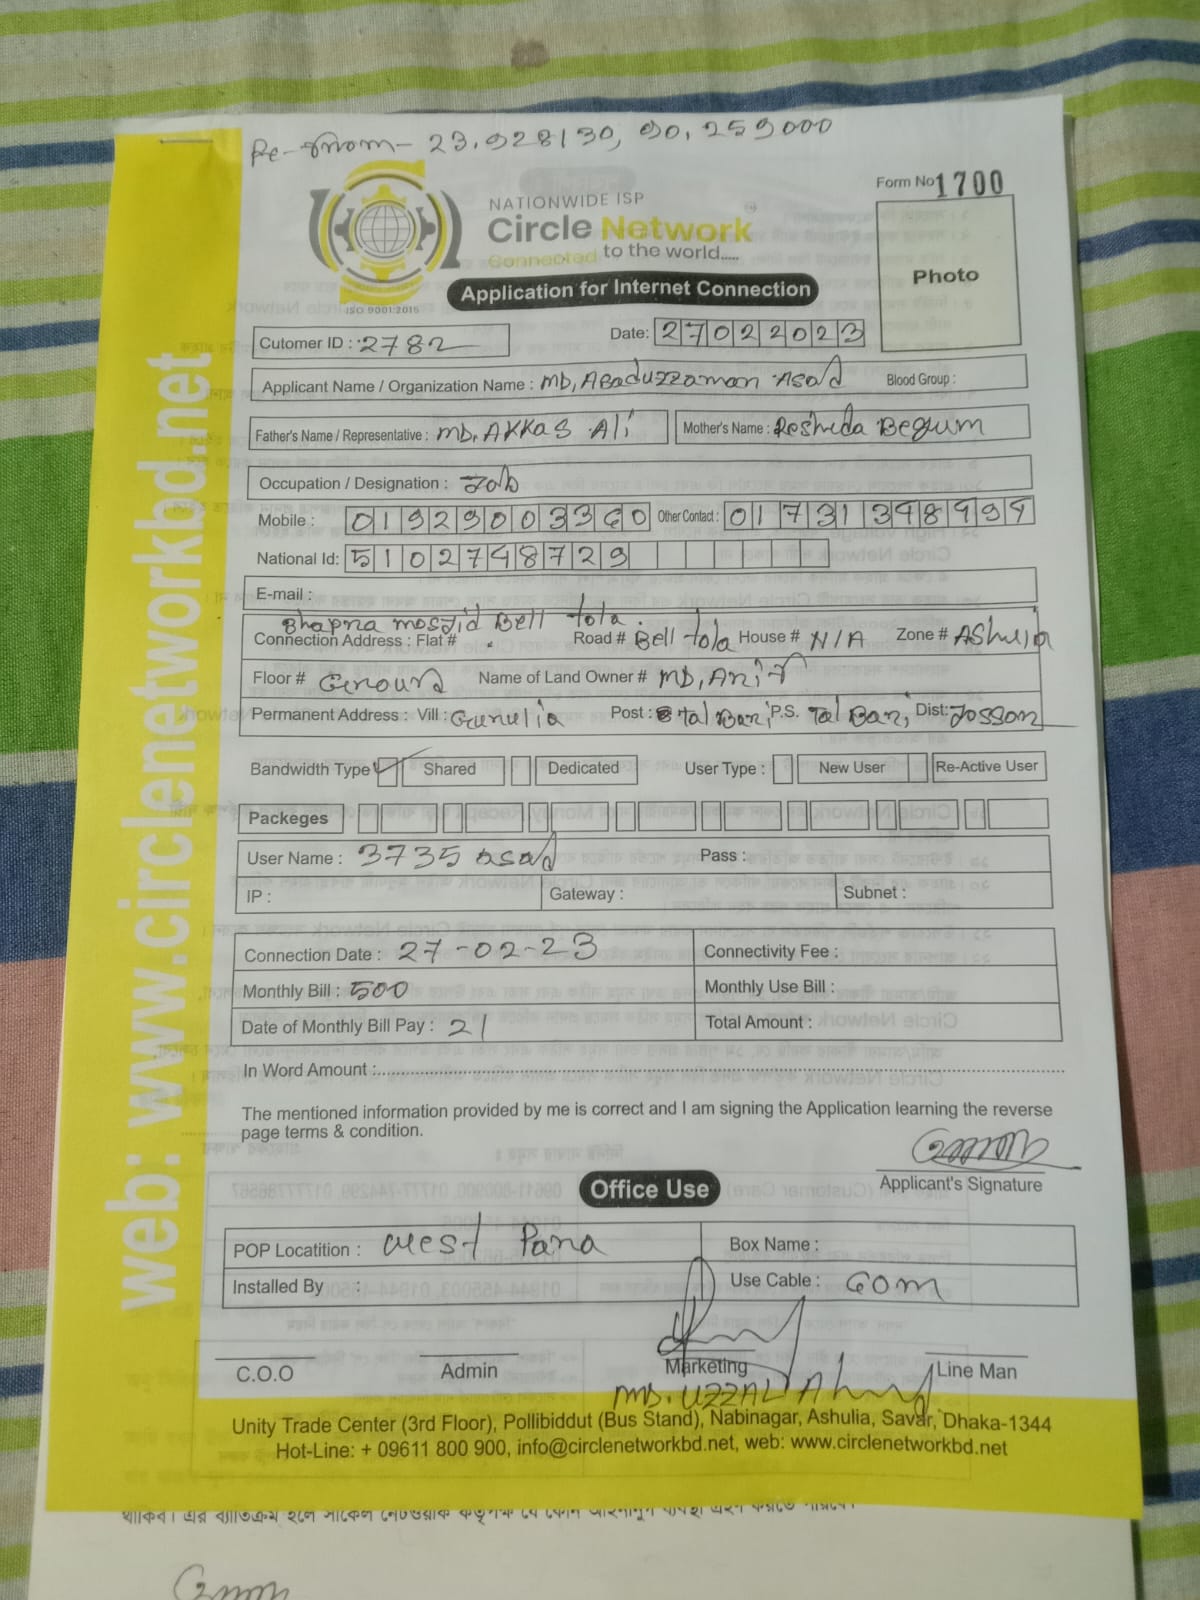 23.928130, 90.259000
Form No 1700
NATIONWIDE ISP
Circle Network
Connected to the world.....
ISO 9001:2015
Photo
Application for Internet Connection
Cutomer ID : 2782
Date: 27022023
Applicant Name / Organization Name : MD, Asaduzzaman Asad
Blood Group :
Father's Name / Representative : MD, AKKAS Ali
Mother's Name : Reshida Begum
Occupation / Designation : Job
Mobile : 01929003360 Other Contact : 01731348494
National Id: 5102748729
E-mail :
Bhapna mosjid Bell tola
Connection Address : Flat # Road # Bell tola House # N/A Zone # Ashulia
Floor # Ground Name of Land Owner # MD, Anif
Permanent Address : Vill : Gunulia Post : Tal Bari P.S. Tal Bari Dist: Jossor
Bandwidth Type Shared Dedicated User Type : New User Re-Active User
Packeges
User Name : 3735 asad Pass :
IP : Gateway : Subnet :
Connection Date : 27-02-23 Connectivity Fee :
Monthly Bill : 500 Monthly Use Bill :
Date of Monthly Bill Pay : 21 Total Amount :
In Word Amount :
The mentioned information provided by me is correct and I am signing the Application learning the reverse
page terms & condition.
Applicant's Signature
Office Use
POP Locatition : West Para Box Name :
Installed By : Use Cable : 60m
C.O.O Admin Marketing Line Man
MD. UZZAL Ahmed
Unity Trade Center (3rd Floor), Pollibiddut (Bus Stand), Nabinagar, Ashulia, Savar, Dhaka-1344
Hot-Line: + 09611 800 900, info@circlenetworkbd.net, web: www.circlenetworkbd.net
web: www.circlenetworkbd.net